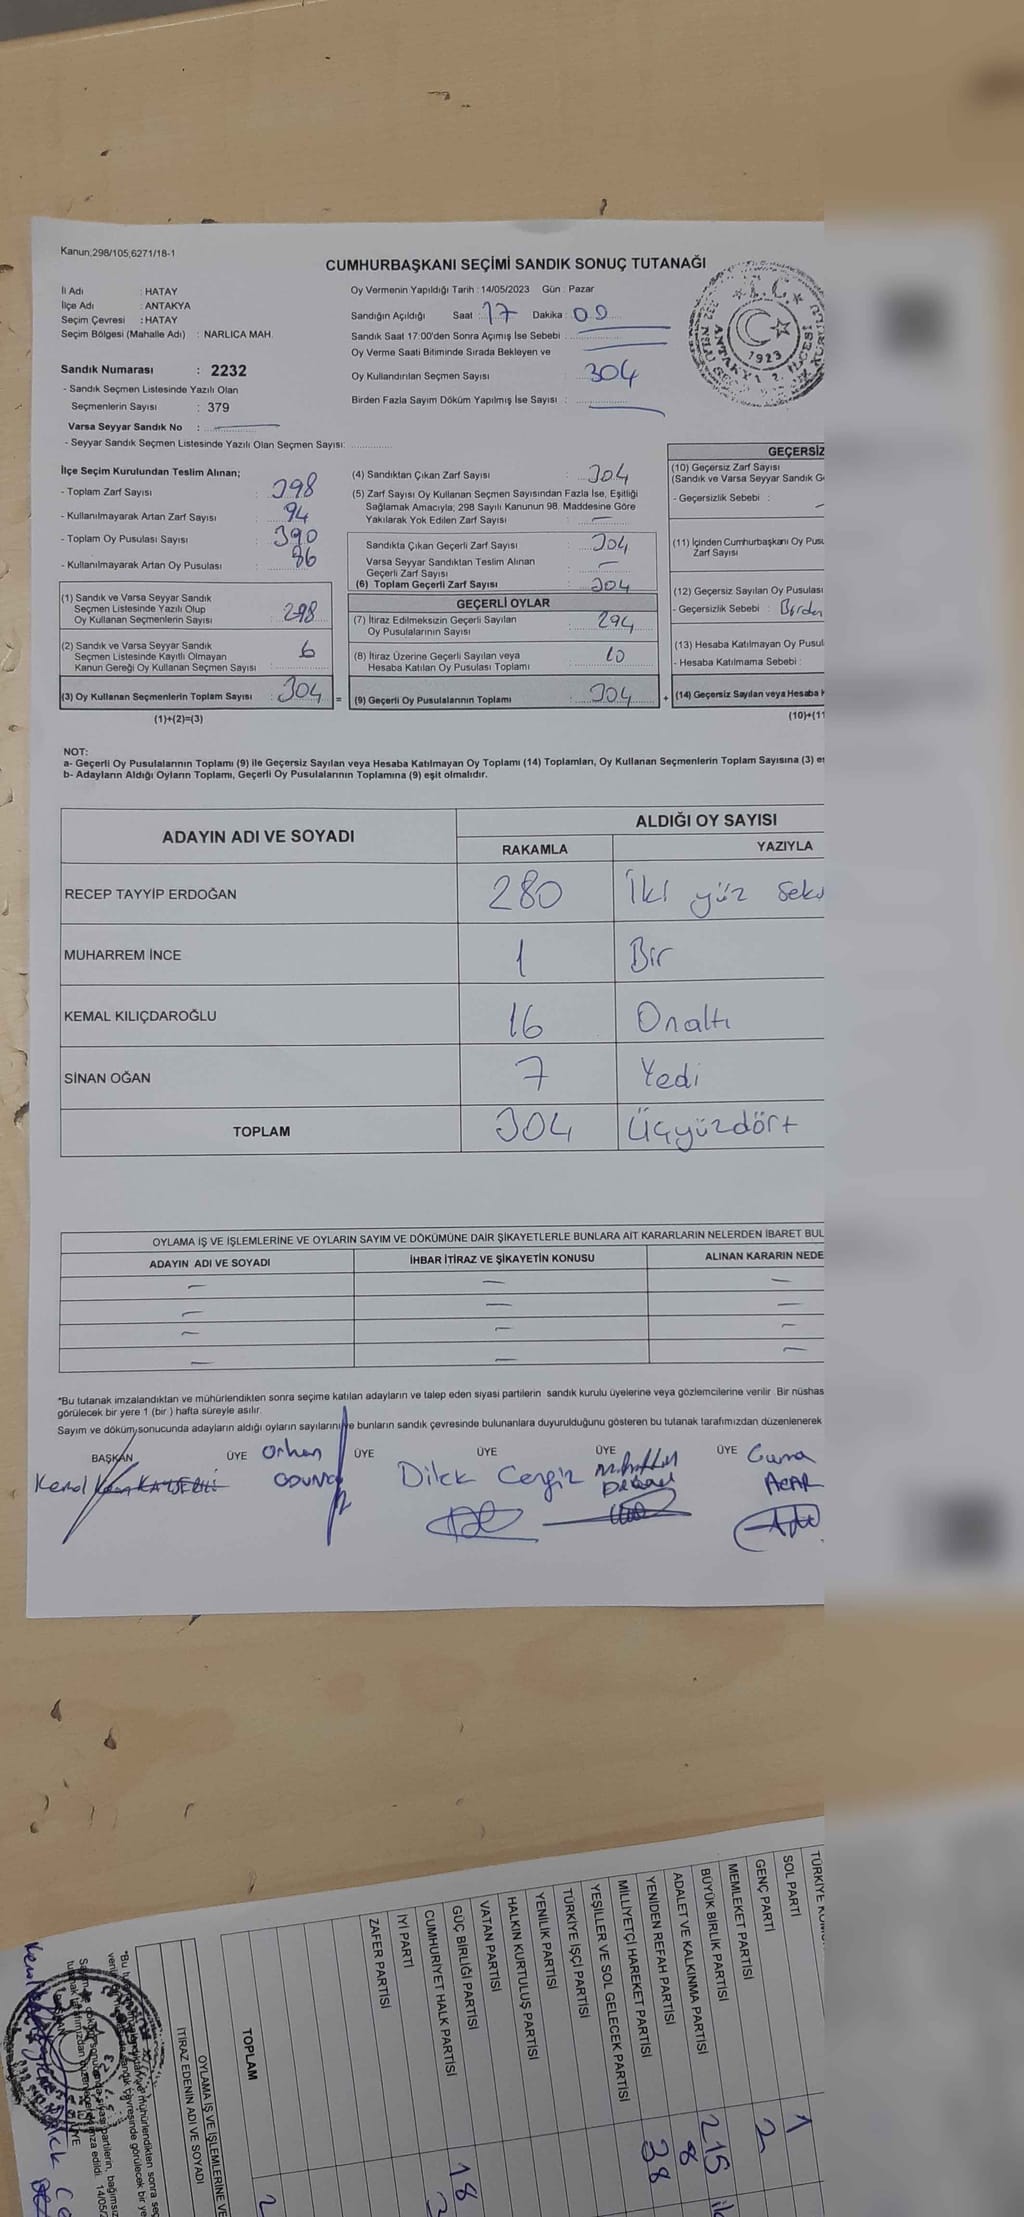 Kanun;298/105,6271/18-1
CUMHURBAŞKANI SEÇİMİ SANDIK SONUÇ TUTANAĞI
İl Adı : HATAY
İlçe Adı : ANTAKYA
Seçim Çevresi : HATAY
Seçim Bölgesi (Mahalle Adı) : NARLICA MAH.
Sandık Numarası : 2232
- Sandık Seçmen Listesinde Yazılı Olan
Seçmenlerin Sayısı : 379
Varsa Seyyar Sandık No :
- Seyyar Sandık Seçmen Listesinde Yazılı Olan Seçmen Sayısı:
Oy Vermenin Yapıldığı Tarih : 14/05/2023 Gün : Pazar
Sandığın Açıldığı Saat : 17 Dakika : 00
Sandık Saat 17:00'den Sonra Açımış İse Sebebi :
Oy Verme Saati Bitiminde Sırada Bekleyen ve
Oy Kullandırılan Seçmen Sayısı : 304
Birden Fazla Sayım Döküm Yapılmış İse Sayısı :
T.C.
1923
İlçe Seçim Kurulundan Teslim Alınan;
- Toplam Zarf Sayısı : 398
- Kullanılmayarak Artan Zarf Sayısı : 94
- Toplam Oy Pusulası Sayısı : 390
- Kullanılmayarak Artan Oy Pusulası : 86
(1) Sandık ve Varsa Seyyar Sandık
Seçmen Listesinde Yazılı Olup
Oy Kullanan Seçmenlerin Sayısı : 298
(2) Sandık ve Varsa Seyyar Sandık
Seçmen Listesinde Kayıtlı Olmayan
Kanun Gereği Oy Kullanan Seçmen Sayısı : 6
(3) Oy Kullanan Seçmenlerin Toplam Sayısı : 304 =
(1)+(2)=(3)
(4) Sandıktan Çıkan Zarf Sayısı : 304
(5) Zarf Sayısı Oy Kullanan Seçmen Sayısından Fazla İse, Eşitliği
Sağlamak Amacıyla; 298 Sayılı Kanunun 98. Maddesine Göre
Yakılarak Yok Edilen Zarf Sayısı : —
Sandıkta Çıkan Geçerli Zarf Sayısı : 304
Varsa Seyyar Sandıktan Teslim Alınan
Geçerli Zarf Sayısı : —
(6) Toplam Geçerli Zarf Sayısı : 304
GEÇERLİ OYLAR
(7) İtiraz Edilmeksizin Geçerli Sayılan
Oy Pusulalarının Sayısı : 294
(8) İtiraz Üzerine Geçerli Sayılan veya
Hesaba Katılan Oy Pusulası Toplamı : 10
(9) Geçerli Oy Pusulalarının Toplamı : 304 +
GEÇERSİZ
(10) Geçersiz Zarf Sayısı
(Sandık ve Varsa Seyyar Sandık
- Geçersizlik Sebebi :
(11) İçinden Cumhurbaşkanı Oy
Zarf Sayısı
(12) Geçersiz Sayılan Oy Pusulası
- Geçersizlik Sebebi :
(13) Hesaba Katılmayan Oy
- Hesaba Katılmama Sebebi :
(14) Geçersiz Sayılan veya Hesaba
(10)+(11
NOT:
a- Geçerli Oy Pusulalarının Toplamı (9) ile Geçersiz Sayılan veya Hesaba Katılmayan Oy Toplamı (14) Toplamları, Oy Kullanan Seçmenlerin Toplam Sayısına (3)
b- Adayların Aldığı Oyların Toplamı, Geçerli Oy Pusulalarının Toplamına (9) eşit olmalıdır.
ADAYIN ADI VE SOYADI
ALDIĞI OY SAYISI
RAKAMLA YAZIYLA
RECEP TAYYİP ERDOĞAN 280 İki yüz seks
MUHARREM İNCE 1 Bir
KEMAL KILIÇDAROĞLU 16 Onaltı
SİNAN OĞAN 7 Yedi
TOPLAM 304 Üçyüzdört
OYLAMA İŞ VE İŞLEMLERİNE VE OYLARIN SAYIM VE DÖKÜMÜNE DAİR ŞİKAYETLERLE BUNLARA AİT KARARLARIN NELERDEN İBARET BUL
ADAYIN ADI VE SOYADI İHBAR İTİRAZ VE ŞİKAYETİN KONUSU ALINAN KARARIN NEDE
*Bu tutanak imzalandıktan ve mühürlendikten sonra seçime katılan adayların ve talep eden siyasi partilerin sandık kurulu üyelerine veya gözlemcilerine verilir. Bir nüshas
görülecek bir yere 1 (bir) hafta süreyle asılır.
Sayım ve döküm sonucunda adayların aldığı oyların sayılarını ve bunların sandık çevresinde bulunanlara duyurulduğunu gösteren bu tutanak tarafımızdan düzenlenerek
BAŞKAN ÜYE ÜYE ÜYE ÜYE ÜYE
Orhan
Dilek Cengiz
Cuma
ACAR
TÜRKİYE
SOL PARTİ 1
GENÇ PARTİ 2
MEMLEKET PARTİSİ
BÜYÜK BİRLİK PARTİSİ 215
ADALET VE KALKINMA PARTİSİ 8
YENİDEN REFAH PARTİSİ 38
MİLLİYETÇİ HAREKET PARTİSİ
YEŞİLLER VE SOL GELECEK PARTİSİ
TÜRKİYE İŞÇİ PARTİSİ
YENİLİK PARTİSİ
HALKIN KURTULUŞ PARTİSİ
VATAN PARTİSİ
GÜÇ BİRLİĞİ PARTİSİ 18
CUMHURİYET HALK PARTİSİ
İYİ PARTİ
ZAFER PARTİSİ
TOPLAM
OYLAMA İŞ VE İŞLEMLERİNE VE
İTİRAZ EDENİN ADI VE SOYADI